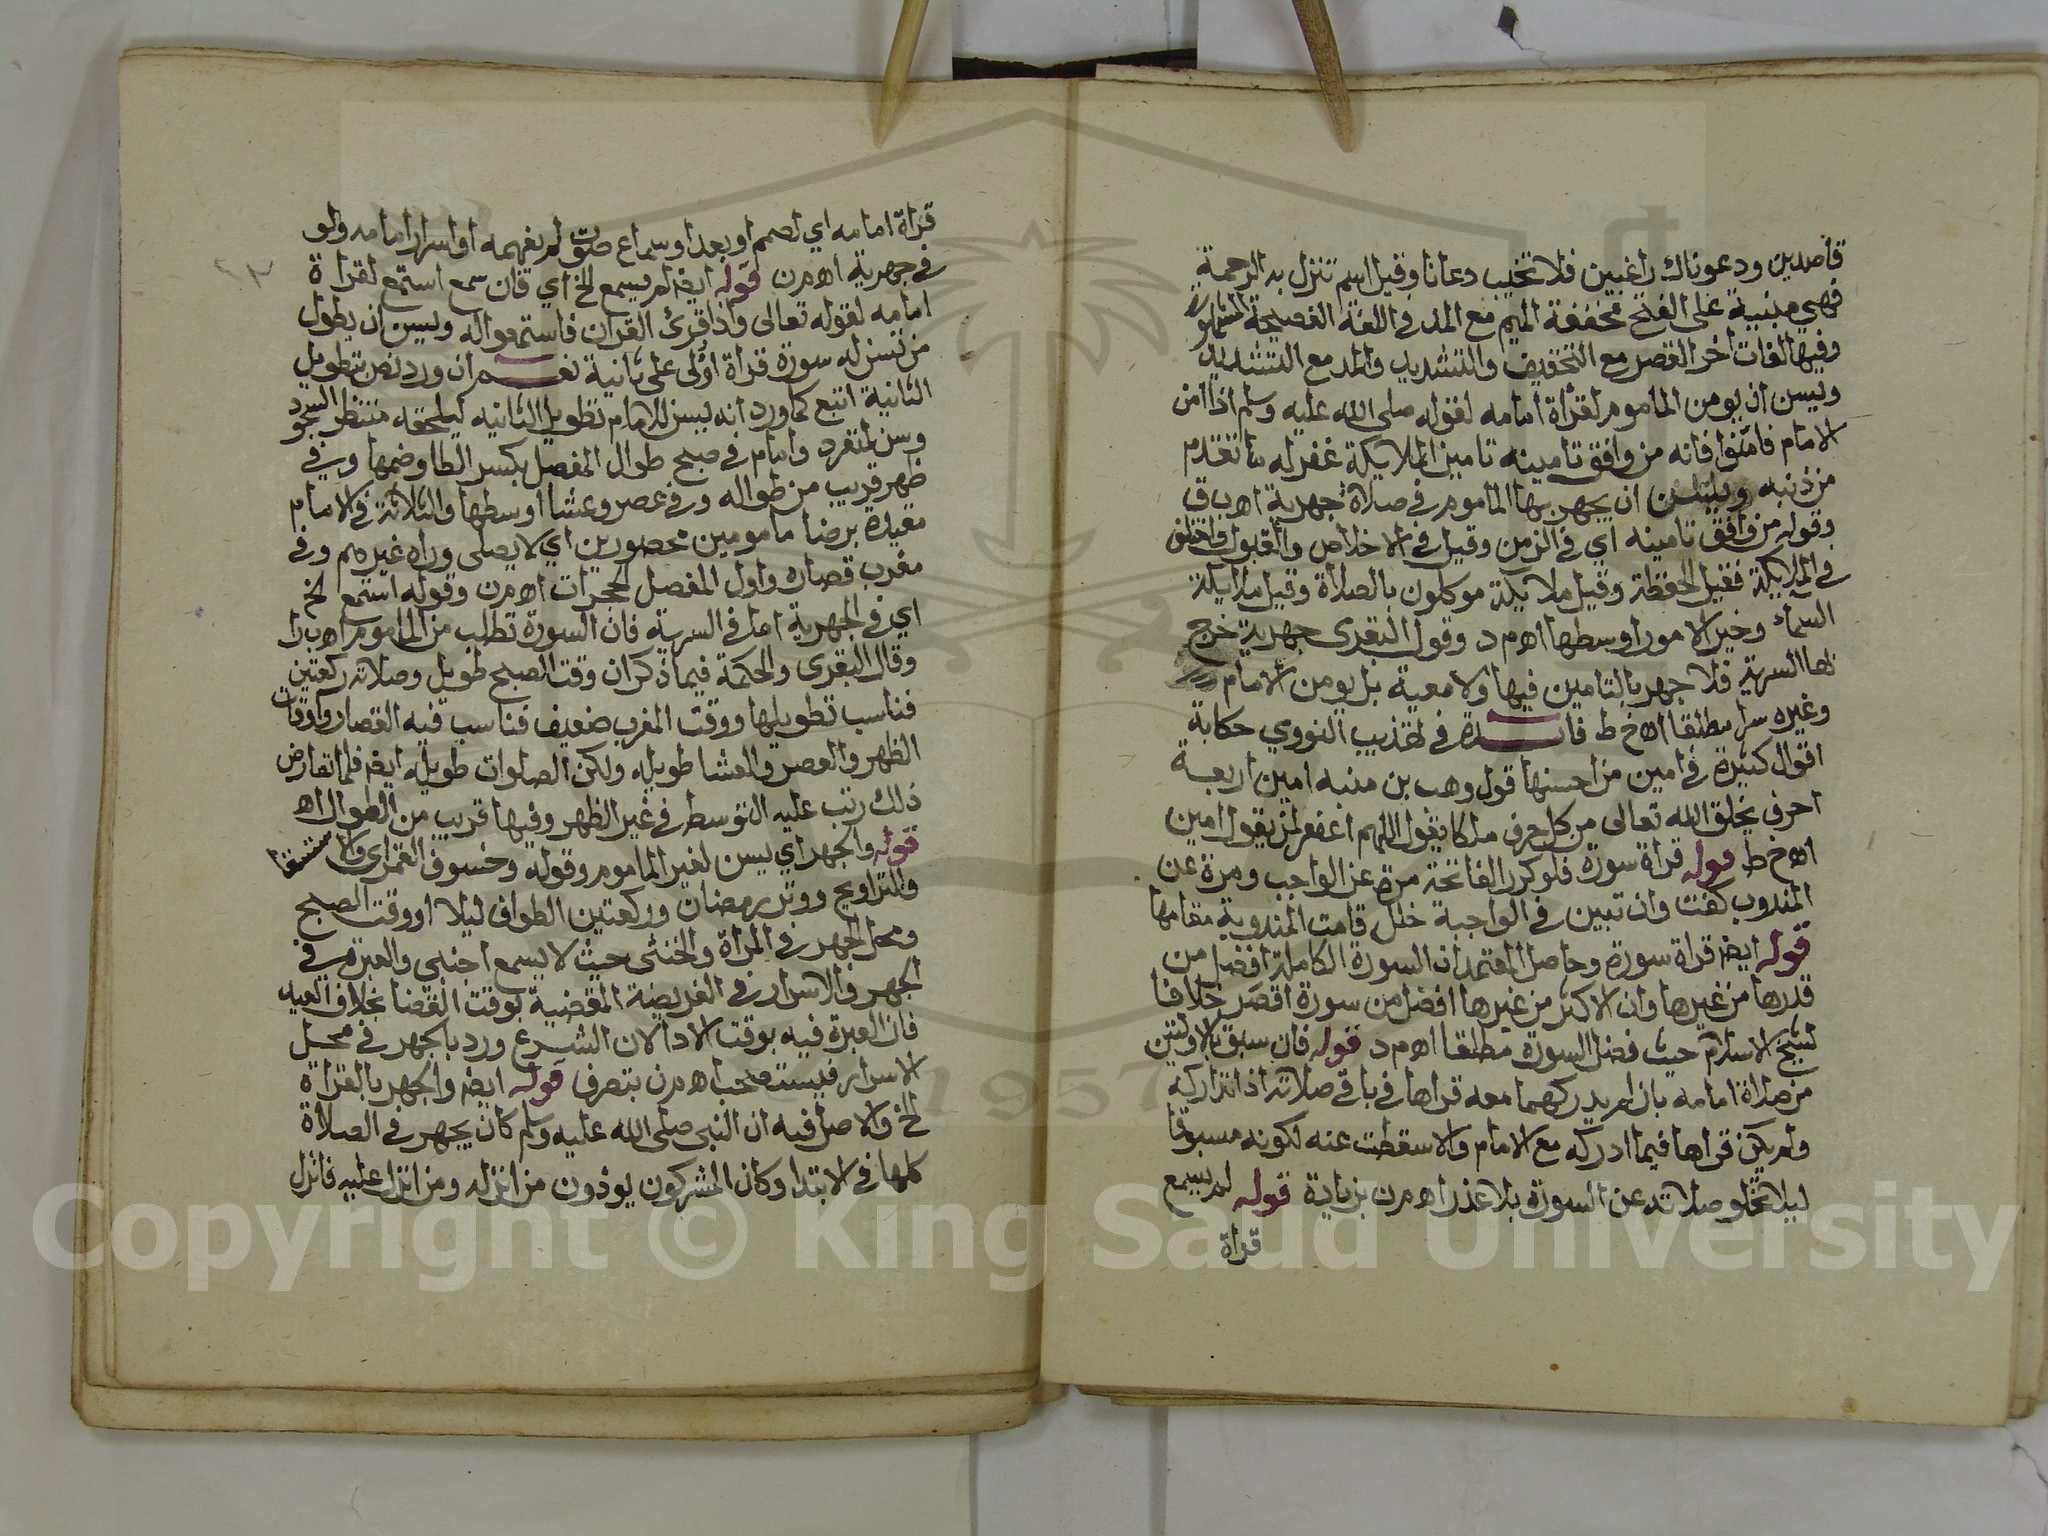 قاصدين ودعوناك راغبين فلا تخيب دعانا وقيل اسم تنزل به الرحمة
فهي مبنية على الفتح مخففة الميم مع المد في اللغة الفصيحة المشهورة
وفيها لغات اخر القصر مع التخفيف والتشديد والمد مع التشديد
ويسن ان يومن الماموم لقراة امامه لقوله صلى الله عليه وسلم اذا امن
الامام فامنوا فانه من وافق تامينه تامين الملايكة غفر له ما تقدم
من ذنبه ويسن ان يجهر بها الماموم في صلاة جهرية اه ب ق
وقوله من وافق تامينه اي في الزمن وقيل في الاخلاص والقبول واختلف
في الملايكة فقيل الحفظة وقيل ملايكة موكلون بالصلاة وقيل ملايكة
السماء وخير الامور اوسطها اه م د وقول البقرى جهرية خرج
بها السرية فلا جهر بالتامين فيها ولا معية بل يومن الامام
وغيره سرا مطلقا اه خ ط فايدة في تهذيب النووي حكاية
اقوال كثيرة في امين من احسنها قول وهب بن منبه امين اربعة
احرف يخلق الله تعالى من كل حرف ملكا يقول اللهم اغفر لمن يقول امين
اه خ ط قوله قراة سورة فلو كرر الفاتحة مرة عن الواجب ومرة عن
المندوب كفت وان تبين في الواجبة خلل قامت المندوبة مقامها
قوله ايضا قراة سورة وحاصل المعتمد ان السورة الكاملة افضل من
قدرها من غيرها وان الاكثر من غيرها افضل من سورة اقصر خلافا
لشيخ الاسلام حيث فضل السورة مطلقا اه م د قوله فان سبق بالاولتين
من صلاة امامه بان لم يدركهما معه قراها في باقي صلاته اذا تداركه
ولم يكن قراها فيما ادركه مع الامام والا سقطت عنه لكونه مسبوقا
ليلا تخلو صلاته عن السورة بلا عذر اه م ن بزيادة قوله لم يسمع
قراة
قراة امامه اي لصمم او بعد او سماع صوت لم يفهمه او اسرار امامه ولو
في جهرية اه م ن قوله ايضا لم يسمع الخ اي فان سمع استمع لقراة
امامه لقوله تعالى واذا قرئ القران فاستمعوا له ويسن ان يطول
من تسن له سورة قراة اولى على ثانية نعم ان ورد نص بتطويل
الثانية اتبع كما ورد انه يسن للامام تطويل الثانيه ليلحقه منتظر السجود
وسن لمنفرد وامام في صبح طوال المفصل بكسر الطا وضمها وفي
ظهر قريب من طواله وفي عصر وعشا اوسطها والثلاثة في الامام
مقيدة برضا مامومين محصورين اي لا يصلى وراه غيرهم وفي
مغرب قصاره واول المفصل الحجرات اه م ن وقوله استمع الخ
اي في الجهرية اما في السرية فان السورة تطلب من الماموم اه ب ر
وقال البقرى والحكمة فيما ذكر ان وقت الصبح طويل وصلاته ركعتين
فناسب تطويلها ووقت المغرب ضعيف فناسب فيه القصار واوقات
الظهر والعصر والعشا طويله ولكن الصلوات طويله ايضا فلما تعارض
ذلك رتب عليه التوسط في غير الظهر وفيها قريب من الطوال اه
قوله والجهر اي يسن لغير الماموم وقوله وخسوف القمر اى والاستسقا
والتراويح ووتر رمضان وركعتين الطواف ليلا او وقت الصبح
ومحل الجهر في المراة والخنثى حيث لا يسمع اجنبي والعبرة في
الجهر والاسرار في الفريضة المقضية بوقت القضا بخلاف العيد
فان العبرة فيه بوقت الادا لان الشرع ورد بالجهر في محل
الاسرار فيستصحب اه م ن بتصرف قوله ايضا والجهر بالقراة
الخ والاصل فيه ان النبي صلى الله عليه وسلم كان يجهر في الصلاة
كلها في الابتدا وكان المشركون يوذون من انزله ومن انزل عليه فانزل
Copyright © King Saud University
1957